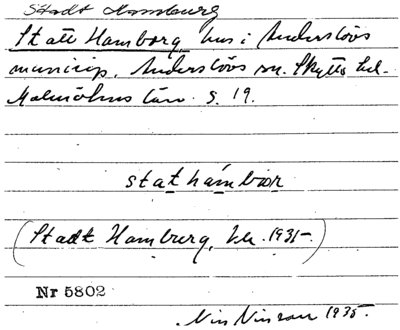 Stadt Hamburg
Statt Hamborg hus i Anderslövs
municip. Anderslövs sn. Skytts hd.
Malmöhus län s. 19.
stat hámbor
(Stadt Hamburg, 1935.)
Nr 5802
Nils Nilsson 1935.